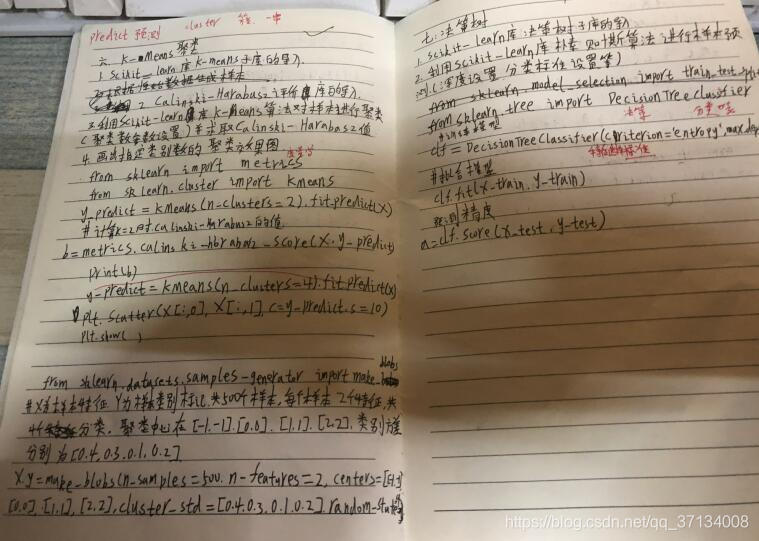 predict 预测 cluster 簇.一串
六. K-Means 聚类
1. Scikit-learn库 K-means子库的导入
2. Calinski-Harabasz评价库的导入
3. 利用Scikit-learn库 K-Means算法对样本进行聚类
(聚类数参数设置)并求取Calinski-Harabasz值
4. 画出指定类别数的聚类效果图
from sklearn import metrics
from sklearn.cluster import kmeans
y_predict = kmeans(n-clusters=2).fit_predict(X)
#计算k=2时.Calinski-Harabasz的值
b=metrics.calinski-harabaz_score(X.y-predict)
print(b)
y-predict = kmeans(n_clusters=4).fit_predict(x)
plt.scatter(X[:,0], X[:,1], c=y-predict.s=10)
plt.show( )
from sklearn.datasets.samples-generator import make-blobs
#X为样本特征 Y为样本类别标记.共500个样本,每个样本2个特征,共
4个分类. 聚类中心在[-1.-1].[0.0]. [1.1]. [2.2], 类别方差
分别为[0.4, 0.3, 0.1, 0.2]
X.y=make-blobs(n-samples=500. n-features=2, centers=[[-1,-1]
[0.0], [1.1], [2,2], cluster_std=[0.4.0.3, 0.1.0.2]. random-state
七. 决策树
1. Scikit-learn库 决策树子库的导入
2. 利用Scikit-learn库 朴素贝叶斯算法进行样本预
测(深度设置 分类标准设置等)
from sklearn.model_selection import train_test_split
from sklearn.tree import DecisionTreeClassifier
决策 分类器
clf = DecisionTreeClassifier(criterion='entropy'.max_dep
特征选择标准
#拟合模型
clf.fit(x-train. y-train)
预测精度
a=clf.score(x_test, y-test)
https://blog.csdn.net/qq_37134008